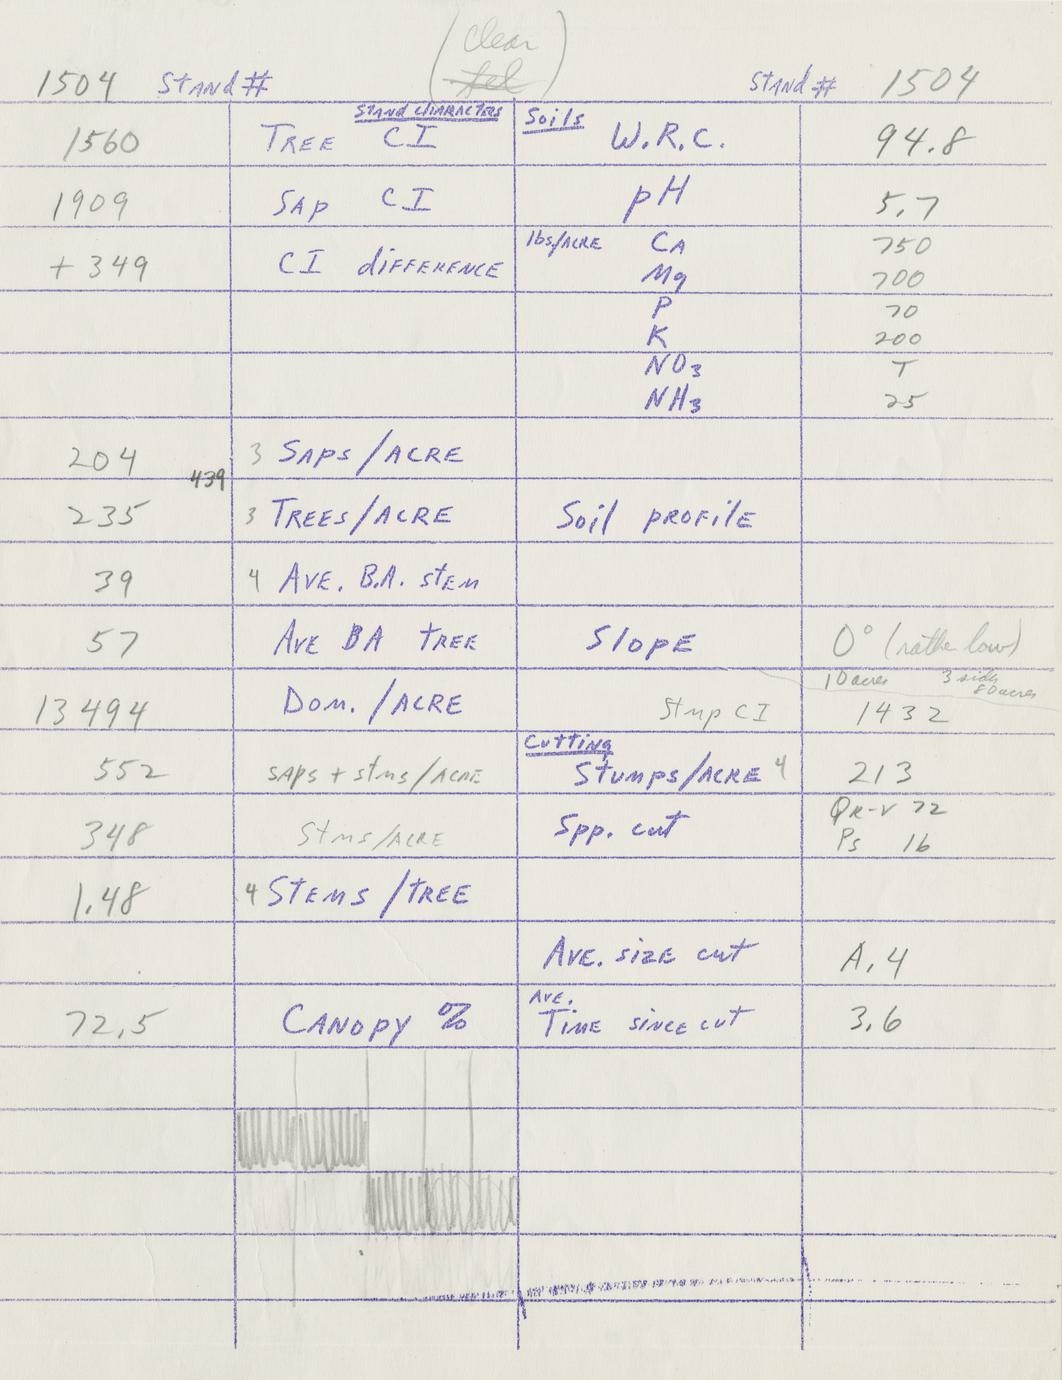 (clear
1504 Stand# Stand# 1504
Stand Characters Soils
1560 Tree CI W.R.C. 94.8
1909 Sap CI pH 5.7
+349 CI difference lbs/Acre Ca 750
Mg 700
P 70
K 200
NO3 T
NH3 25
204 3 Saps/Acre
439
235 3 Trees/Acre Soil profile
39 4 Ave. B.A. stem
57 Ave BA tree Slope 0° (rather low)
10 acres 3 sides
80 acres
13494 Dom./Acre Stmp CI 1432
Cutting
552 saps + stms/Acre Stumps/Acre 4 213
348 Stms/Acre Spp. cut QR-V 72
Ps 16
1.48 4 Stems/tree
Ave. size cut A.4
Ave.
72.5 Canopy % Time since cut 3.6